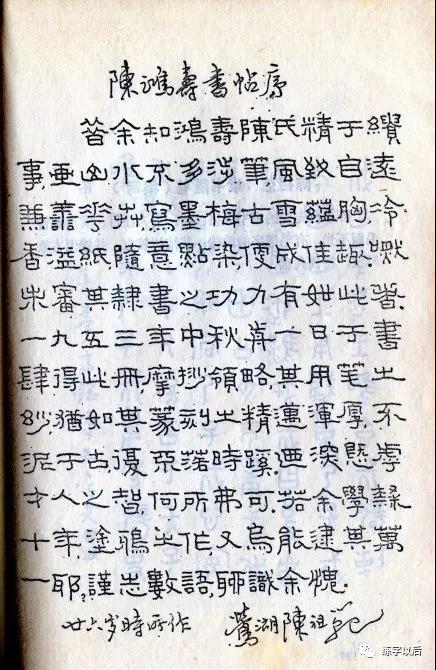 陳鴻壽書帖序
昔余知鴻壽陳氏精于繢
事,山水不多涉筆,風致自遠
兼花卉,寫墨梅古雪縕胸,冷
香溢紙,隨意點染,便成佳趣,
未審其隸書之功力有如此者.
一九五三年中秋歬一日于書
肆得此冊,摩挱領略,其用筆之
妙,猶如其篆刻之精邁渾厚,不
泥于古,復不落時蹊,迺深懸虖
才人之智,何所弗可.若余學隸
十年,塗鴉之作,又烏能逮其萬
一耶,謹志數語,聊識余愧.
廿六岁時所作 鶯湖陳祖範
练字以后